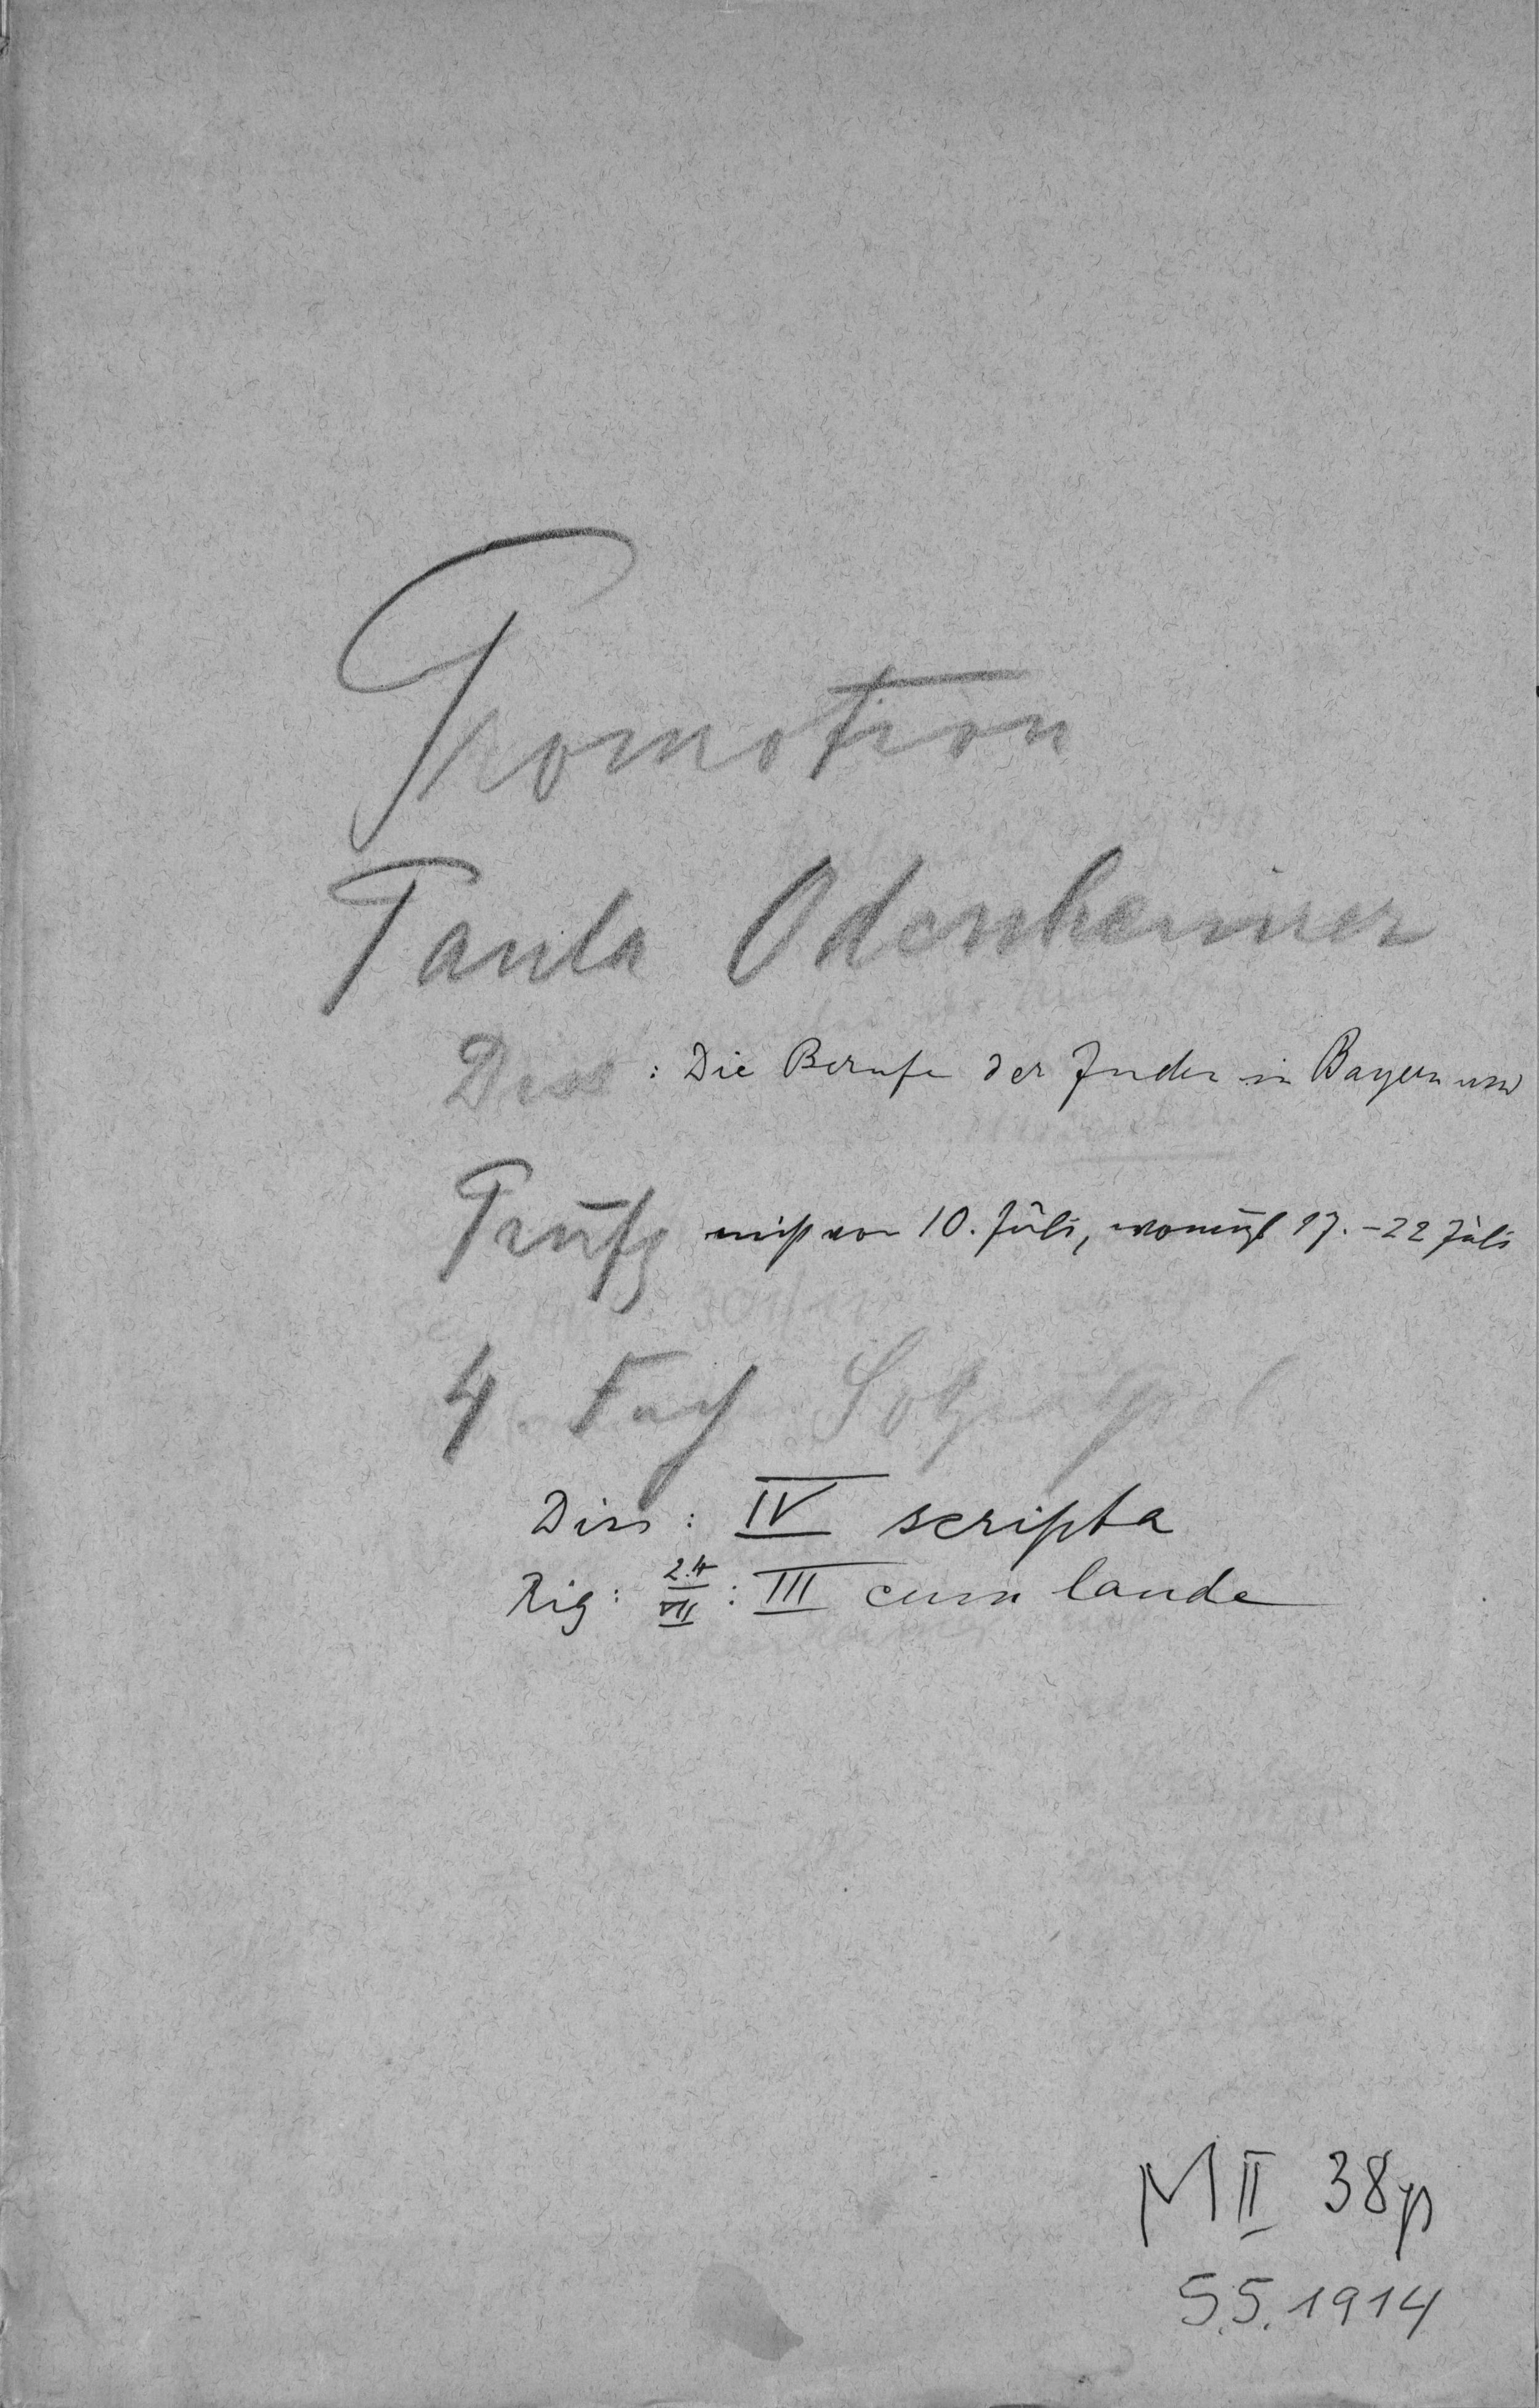 Promotion
Paula Odenheimer
Diss : Die Berufe der Juden in Bayern usw
Prüfg nicht vor 10. Juli, womögl 17. - 22 Juli
4. Fach
Diss : IV scripta
Rig : 24/VII : III cum laude
M II 38p
S.S. 1914